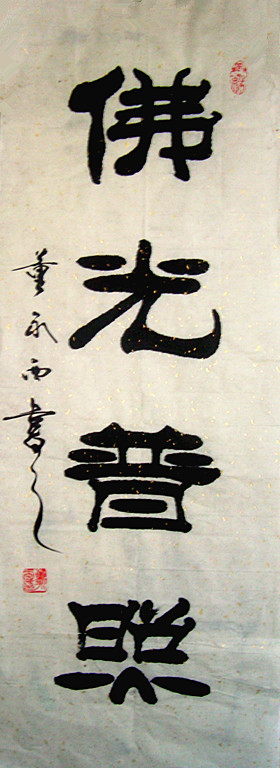 佛光普照
董永西書